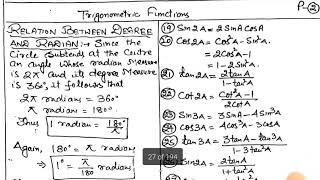 Trigonometric Functions
P-2
RELATION BETWEEN DEGREE
AND RADIAN:- Since the
Circle Subtends at the Centre
an angle whose radian measure
is 2π and its degree measure
is 360°, it follows that
2π radians = 360°
π radians = 180°
Thus 1 radian = 180°/π
Again, 180° = π radians
1° = π/180 radians
19) Sin2A = 2SinA CosA
20) Cos2A = Cos²A - Sin²A.
= 2Cos²A - 1
= 1 - 2Sin²A.
21) tan2A = 2tanA/1-tan²A
22) Cot2A = Cot²A-1/2CotA
23) Sin3A = 3SinA - 4Sin³A
24) Cos3A = 4Cos³A - 3CosA
25) tan3A = 3tanA - tan³A/1-3tan²A
Sin2A = 2tanA/1+tan²A
27 of 194